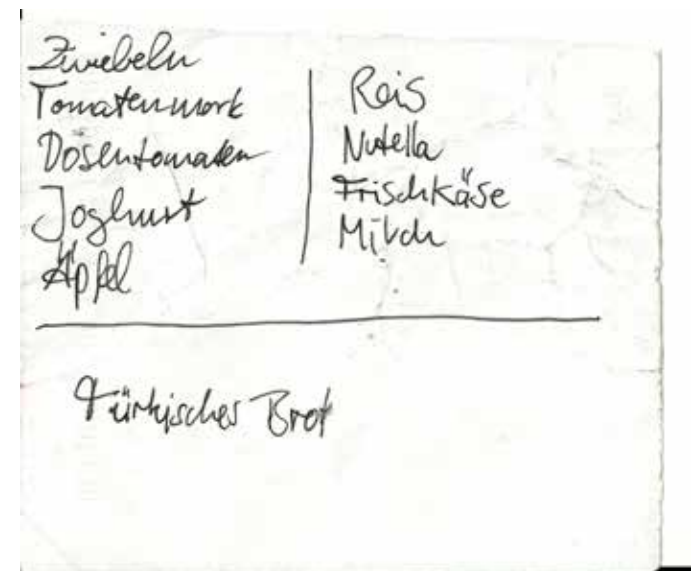 Zwiebeln
Tomatenmark
Dosentomaten
Joghurt
Äpfel
Reis
Nutella
Frischkäse
Milch
Türkisches Brot